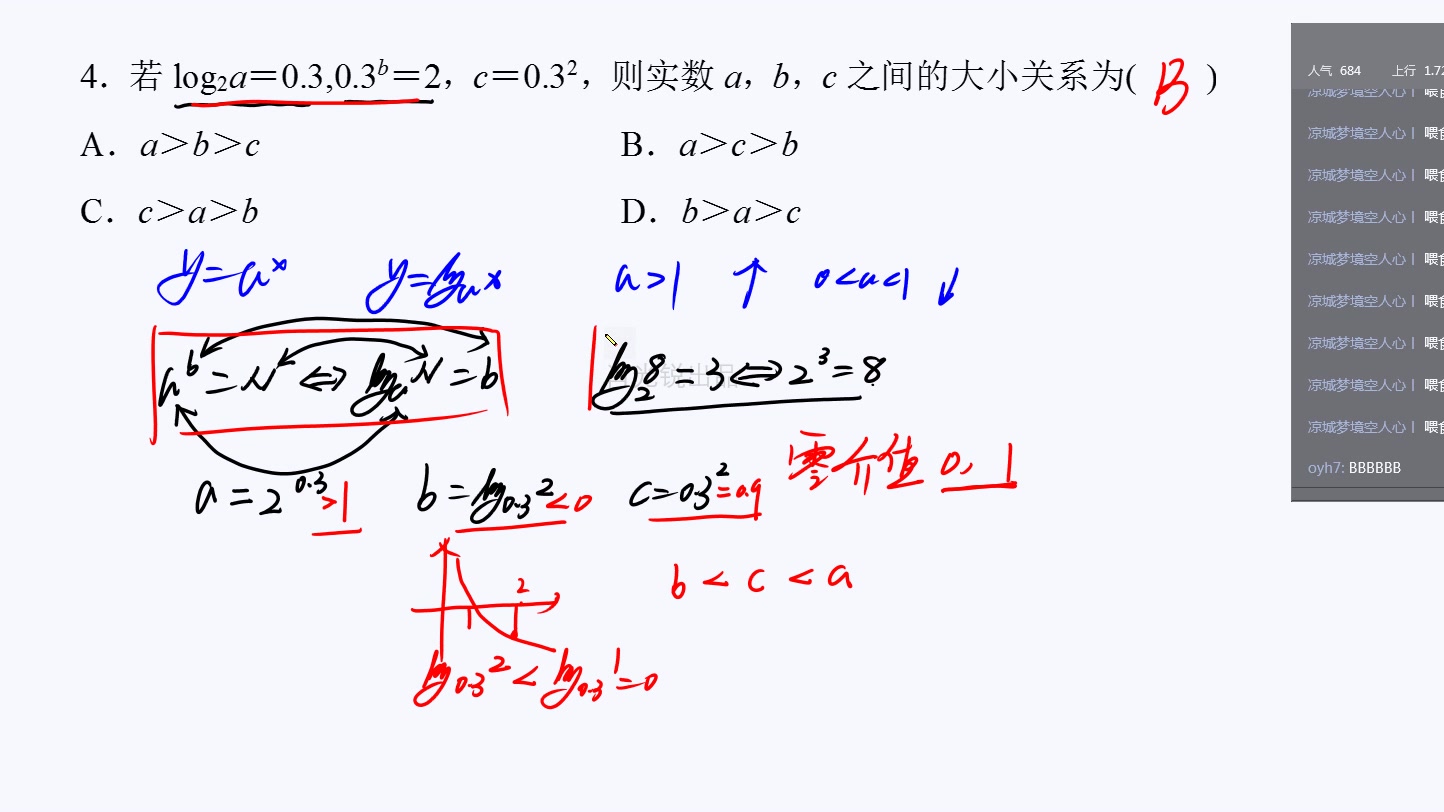 4．若 log₂a＝0.3,0.3ᵇ＝2，c＝0.3²，则实数 a，b，c 之间的大小关系为( B )
A．a＞b＞c
B．a＞c＞b
C．c＞a＞b
D．b＞a＞c
y=aˣ y=logₐx a>1 ↑ 0<a<1 ↓
aᵇ=N⇔logₐN=b
log₂8=3⇔2³=8
a=2^0.3>1 b=log₀.₃2<0 c=0.3²=0.9 零介值 0, 1
2
b<c<a
log₀.₃2<log₀.₃1=0
人气 684 上行 1.72
凉城梦境空人心丨
凉城梦境空人心丨
凉城梦境空人心丨
凉城梦境空人心丨
凉城梦境空人心丨
凉城梦境空人心丨
凉城梦境空人心丨
凉城梦境空人心丨
凉城梦境空人心丨
oyh7: BBBBBB